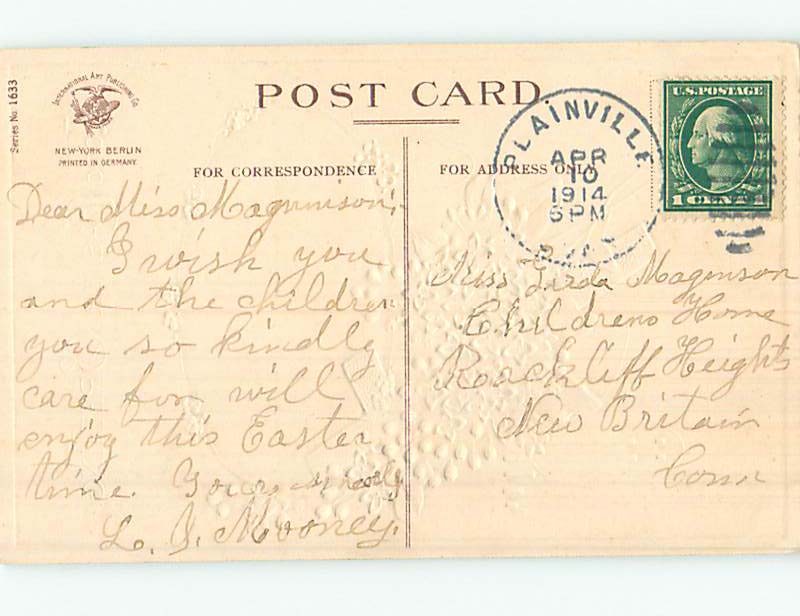 Series No. 1633
INTERNATIONAL ART PUBLISHING Co.
NEW-YORK BERLIN
PRINTED IN GERMANY
POST CARD
FOR CORRESPONDENCE
FOR ADDRESS ONLY
PLAINVILLE
APR
10
1914
6 PM
U.S. POSTAGE
1 CENT 1
Dear Miss Magnunison;
I wish you
and the children
you so kindly
care for will
enjoy this Easter
time. Yours
L. J. Mooney.
Miss Magnuson
Childrens Home
Rockcliff Heights
New Britain
Conn